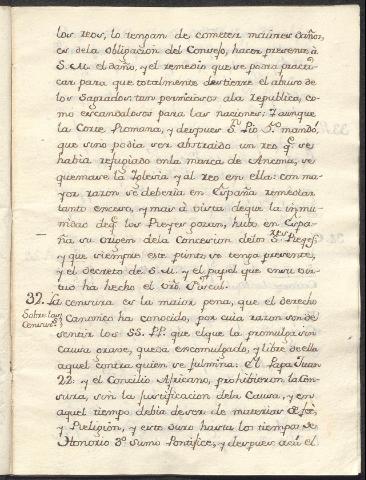 los reos, lo tengan de cometer maiores daños,
es de la obligacion del Consejo, hacer presente à
S. M. el daño, y el remedio que se podra practi
car para que totalmente destierre el abuso de
los Sagrados tan perniciosos ala republica, co-
mo escandalosos para las naciones: Y aunque
la Corte Romana, y despues Sn. Pio 5º mandó,
que sino podia ser abstraido un reo q.e se
habia refugiado en la marca de Ancona, se
quemase la Iglesia y al reo en ella: con ma-
yor razon se deberia en España remediar
tanto exceso, y mas à vista de que la inmu-
nidad de q.e los Reyes gozan, hubo en Espa-
ña su origen de la Concesion de los S.res Reyes
y que siempre este punto se tenga presente,
y el decreto de S. M. y el papel que en su vir-
tud ha hecho el Fiscal.
32. La censura es la maior pena, que el derecho
Sobre las
Censuras
Canonico ha conocido, por cuia razon son de
sentir los SS. PP. que el que la promulga sin
causa grave, queda excomulgado, y libre de ella
aquel contra quien se fulmina: El Papa Juan
22. y el Concilio Africano, prohibieron la Cen-
sura, sin la justificacion de la Causa, y en
aquel tiempo debia de ser de materias de feè,
y Religion, y esto duró hasta los tiempos de
Honorio 3º Sumo Pontifice, y despues acà el